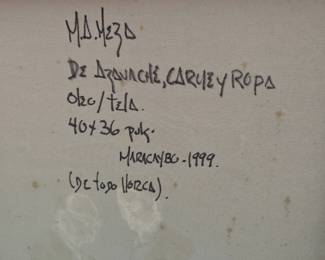 M.A. Meza
DE AZAVACHE, CARNE y ROPA
Oleo/tela.
40x36 pulg.
MARACAYBO-1999.
(De todo llorca).